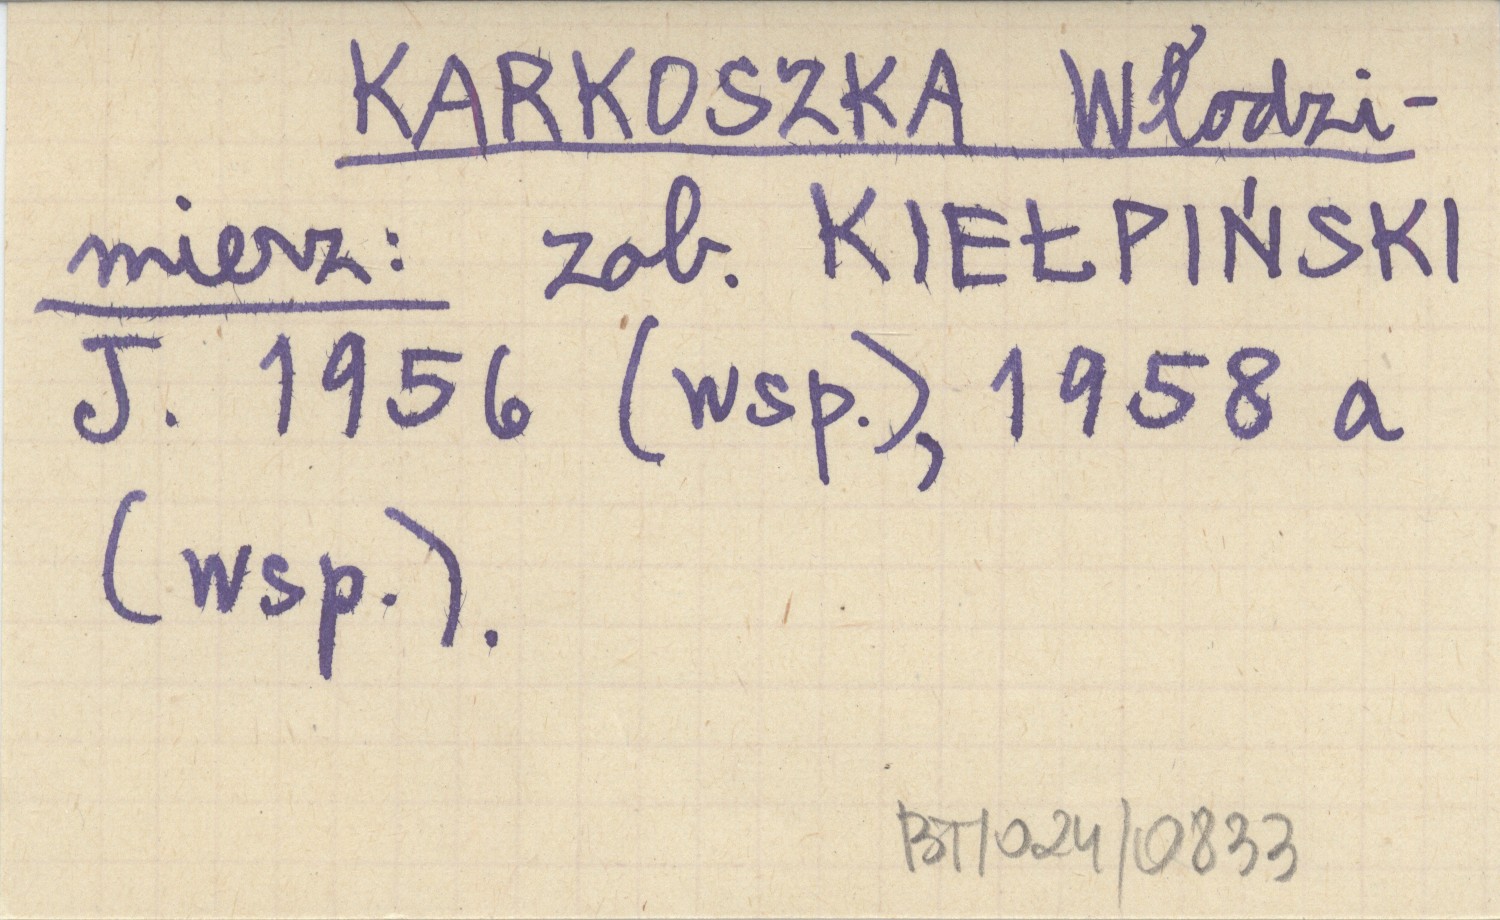 KARKOSZKA Włodzi-
mierz: zob. KIEŁPIŃSKI
J. 1956 (wsp.), 1958 a
(wsp.).
BT/024/0833